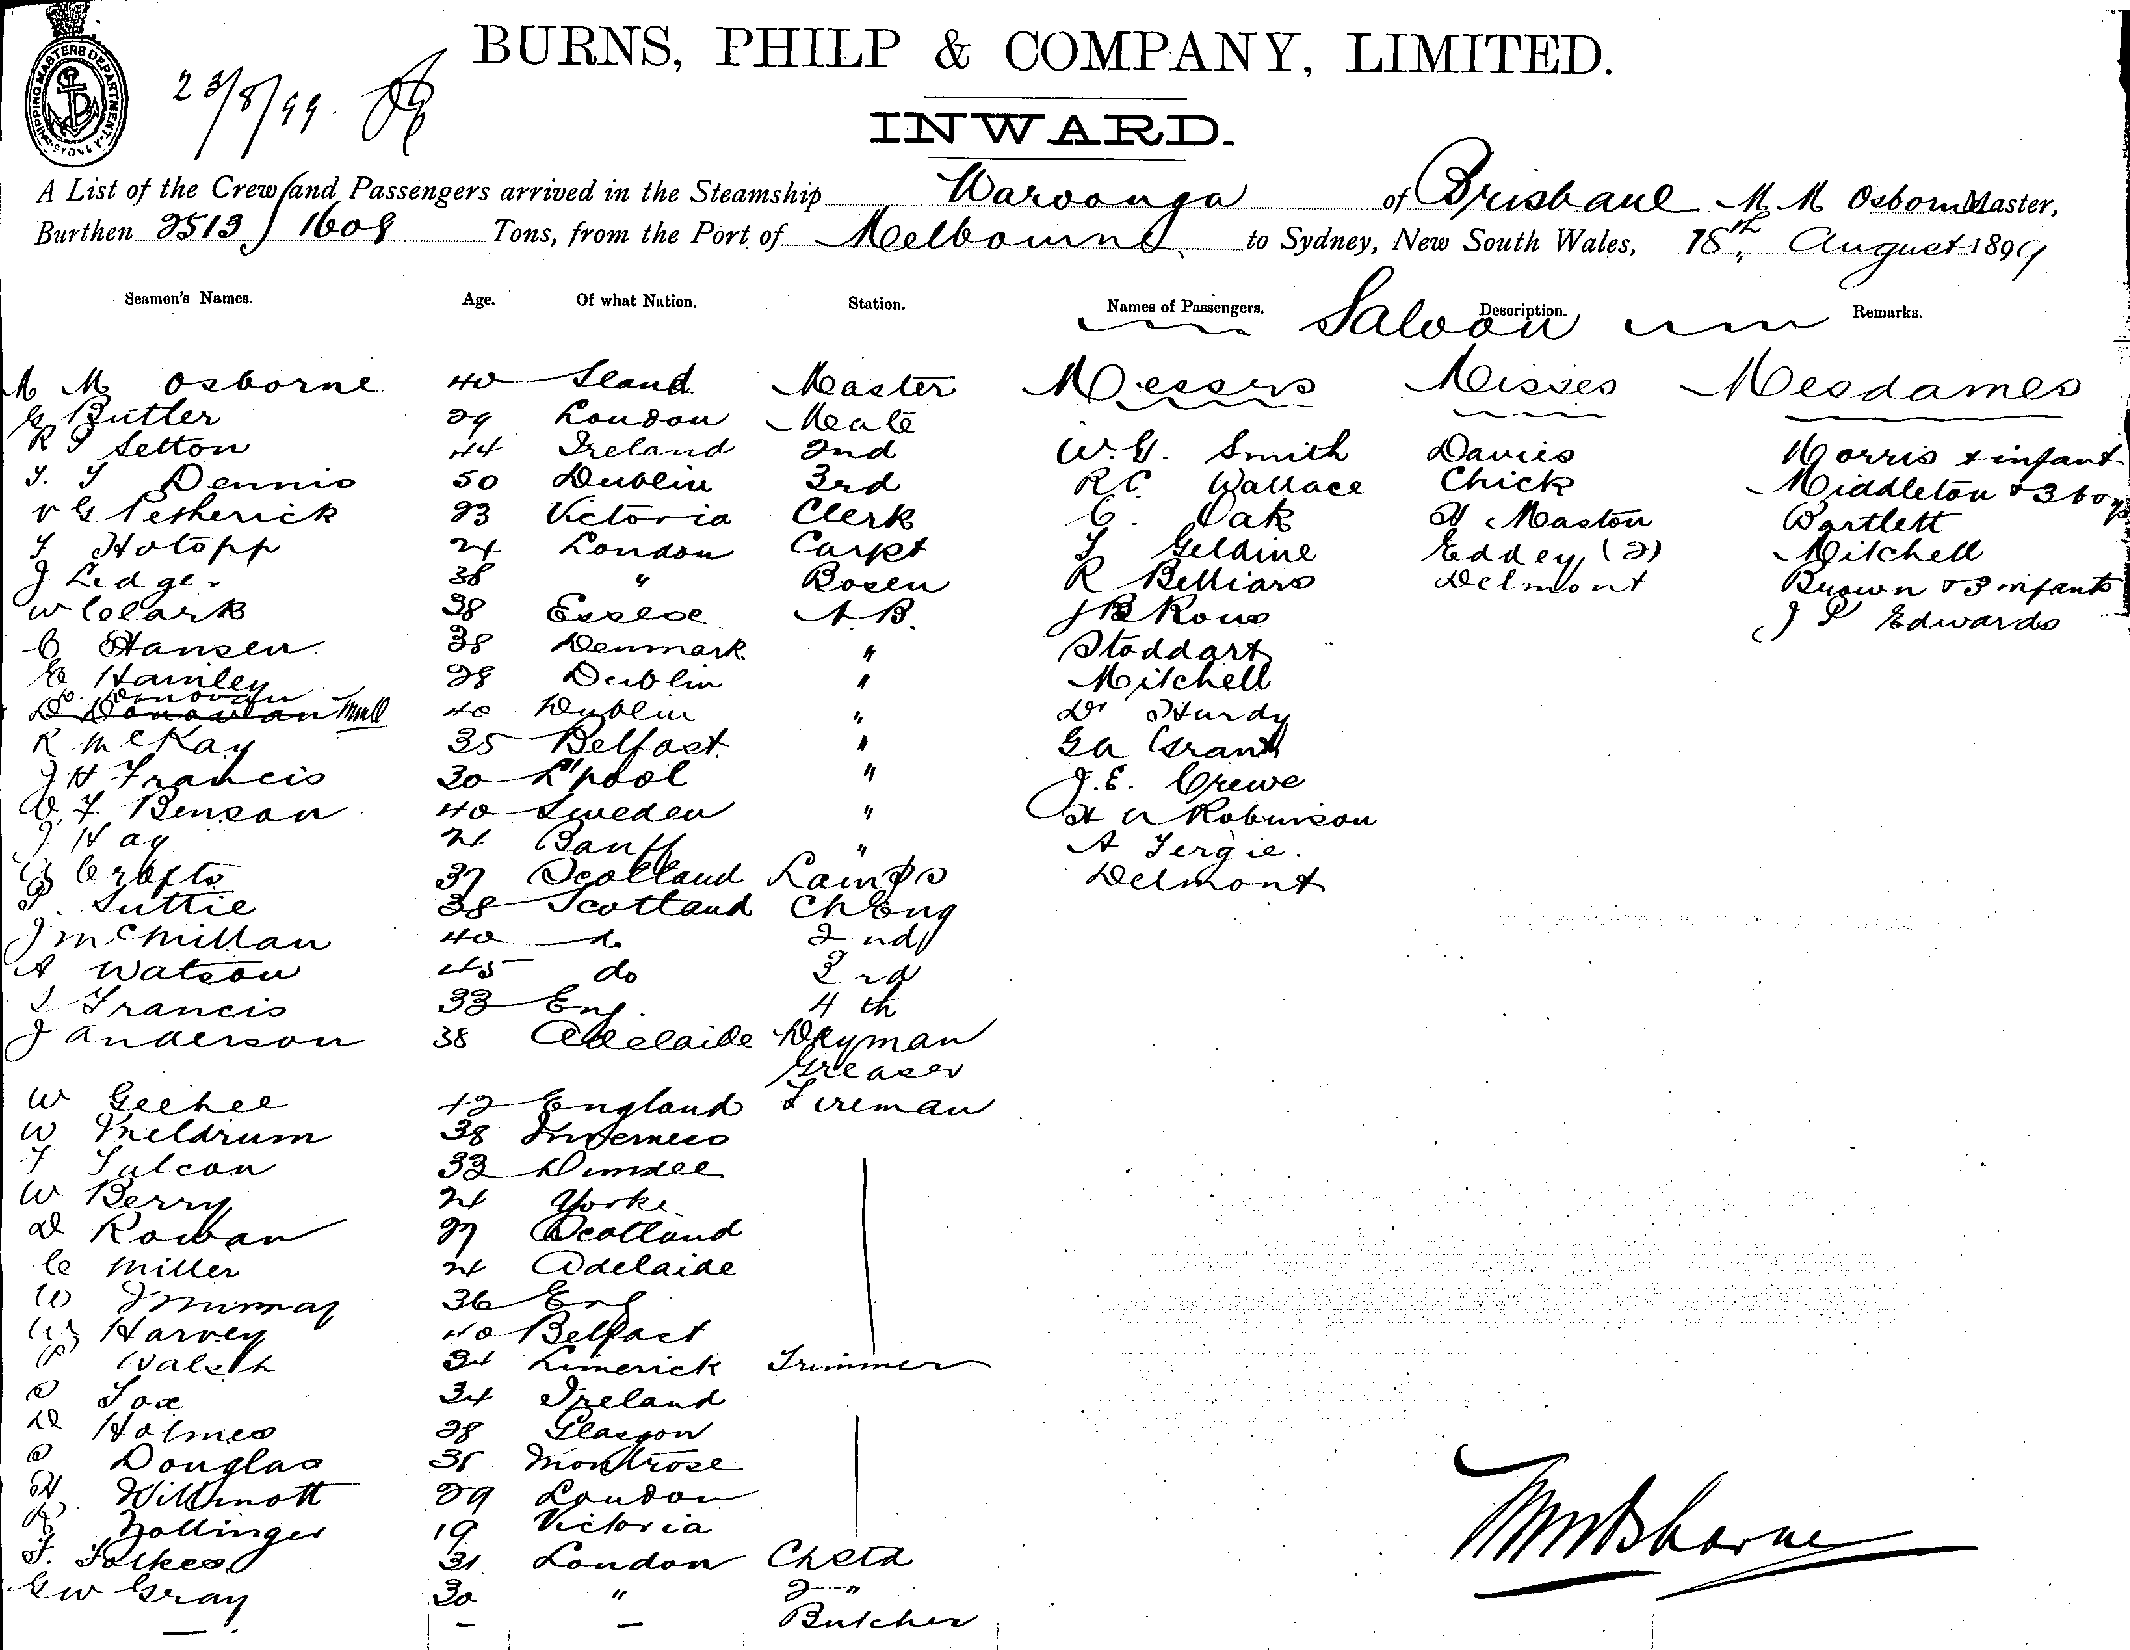 SHIPPING MASTERS DEPARTMENT. SYDNEY
23/8/99.
BURNS, PHILP & COMPANY, LIMITED.
INWARD.
A List of the Crew and Passengers arrived in the Steamship Waroonga of Brisbane M. M Osborne Master,
Burthen 2513 / 1608 Tons, from the Port of Melbourne to Sydney, New South Wales, 18th August 1899
Seamen's Names. Age. Of what Nation. Station. Names of Passengers. Description. Remarks.
Saloon
M M Osborne 40 Sland Master Messrs Misses Mesdames
G Butler 29 London Mate
R Setton 44 Ireland 2nd W. G. Smith Davies Morris + infant
Dennis 50 Dublin 3rd R C. Wallace Chick Middleton + 3 boys
V G Petherick 23 Victoria Clerk C. Oak H Maston Bartlett
Hotopp 24 London Carpt Geldine Eddey (2) Mitchell
J Ledger 38 " Bosen R Belliars Delmont Brown + 3 infants
W Clark 38 Essex A. B. J B Rous J P Edwards
C Hansen 38 Denmark " Stoddart
E Hainley 28 Dublin " Mitchell
D. Donovan
D Donovan 40 Dublin " Dr Hurdy
R McKay 35 Belfast " G A Grant
J H Francis 30 L'pool " J. E. Crewe
O. F. Benson 40 Sweden " H A Robinson
J Hay 21 Banff " A Fergie.
Crofts 37 Scotland Lamps Delmont
P. Suttie 38 Scotland Ch Eng
J McMillan 40 do 2nd
A Watson 45 do 3rd
Francis 33 Eng. 4th
J Anderson 38 Adelaide Dkyman
Greaser
W Geehee 42 England Fireman
W Meldrum 38 Inverness
F Falcon 33 Dundee
W Berry 24 Yorks.
D Rowan 27 Scotland
C Miller 24 Adelaide
W Murray 36 Eng
Harvey 40 Belfast
P Walsh 34 Limerick Trimmer
Fox 34 Ireland
D Holmes 28 Glasgow
Douglas 35 Montrose
H Willmott 29 London
Zollinger 19 Victoria
F. Folkes 31 London Ch Std
G W Gray 30 " 2 "
— — — Butcher
MM Osborne